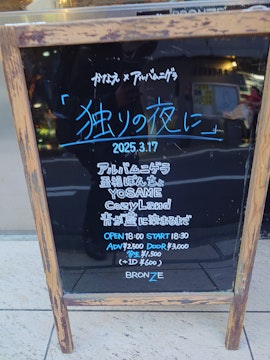 かなえ×アルバムニゲラ
「独りの夜に」
2025.3.17
アルバムニゲラ
YOSAME
CozyLand
青が藍に染まるまで
OPEN 18:00 START 18:30
ADV ¥2,500 DOOR ¥3,000
学生 ¥1,500
(+1D ¥600)
BRONZE